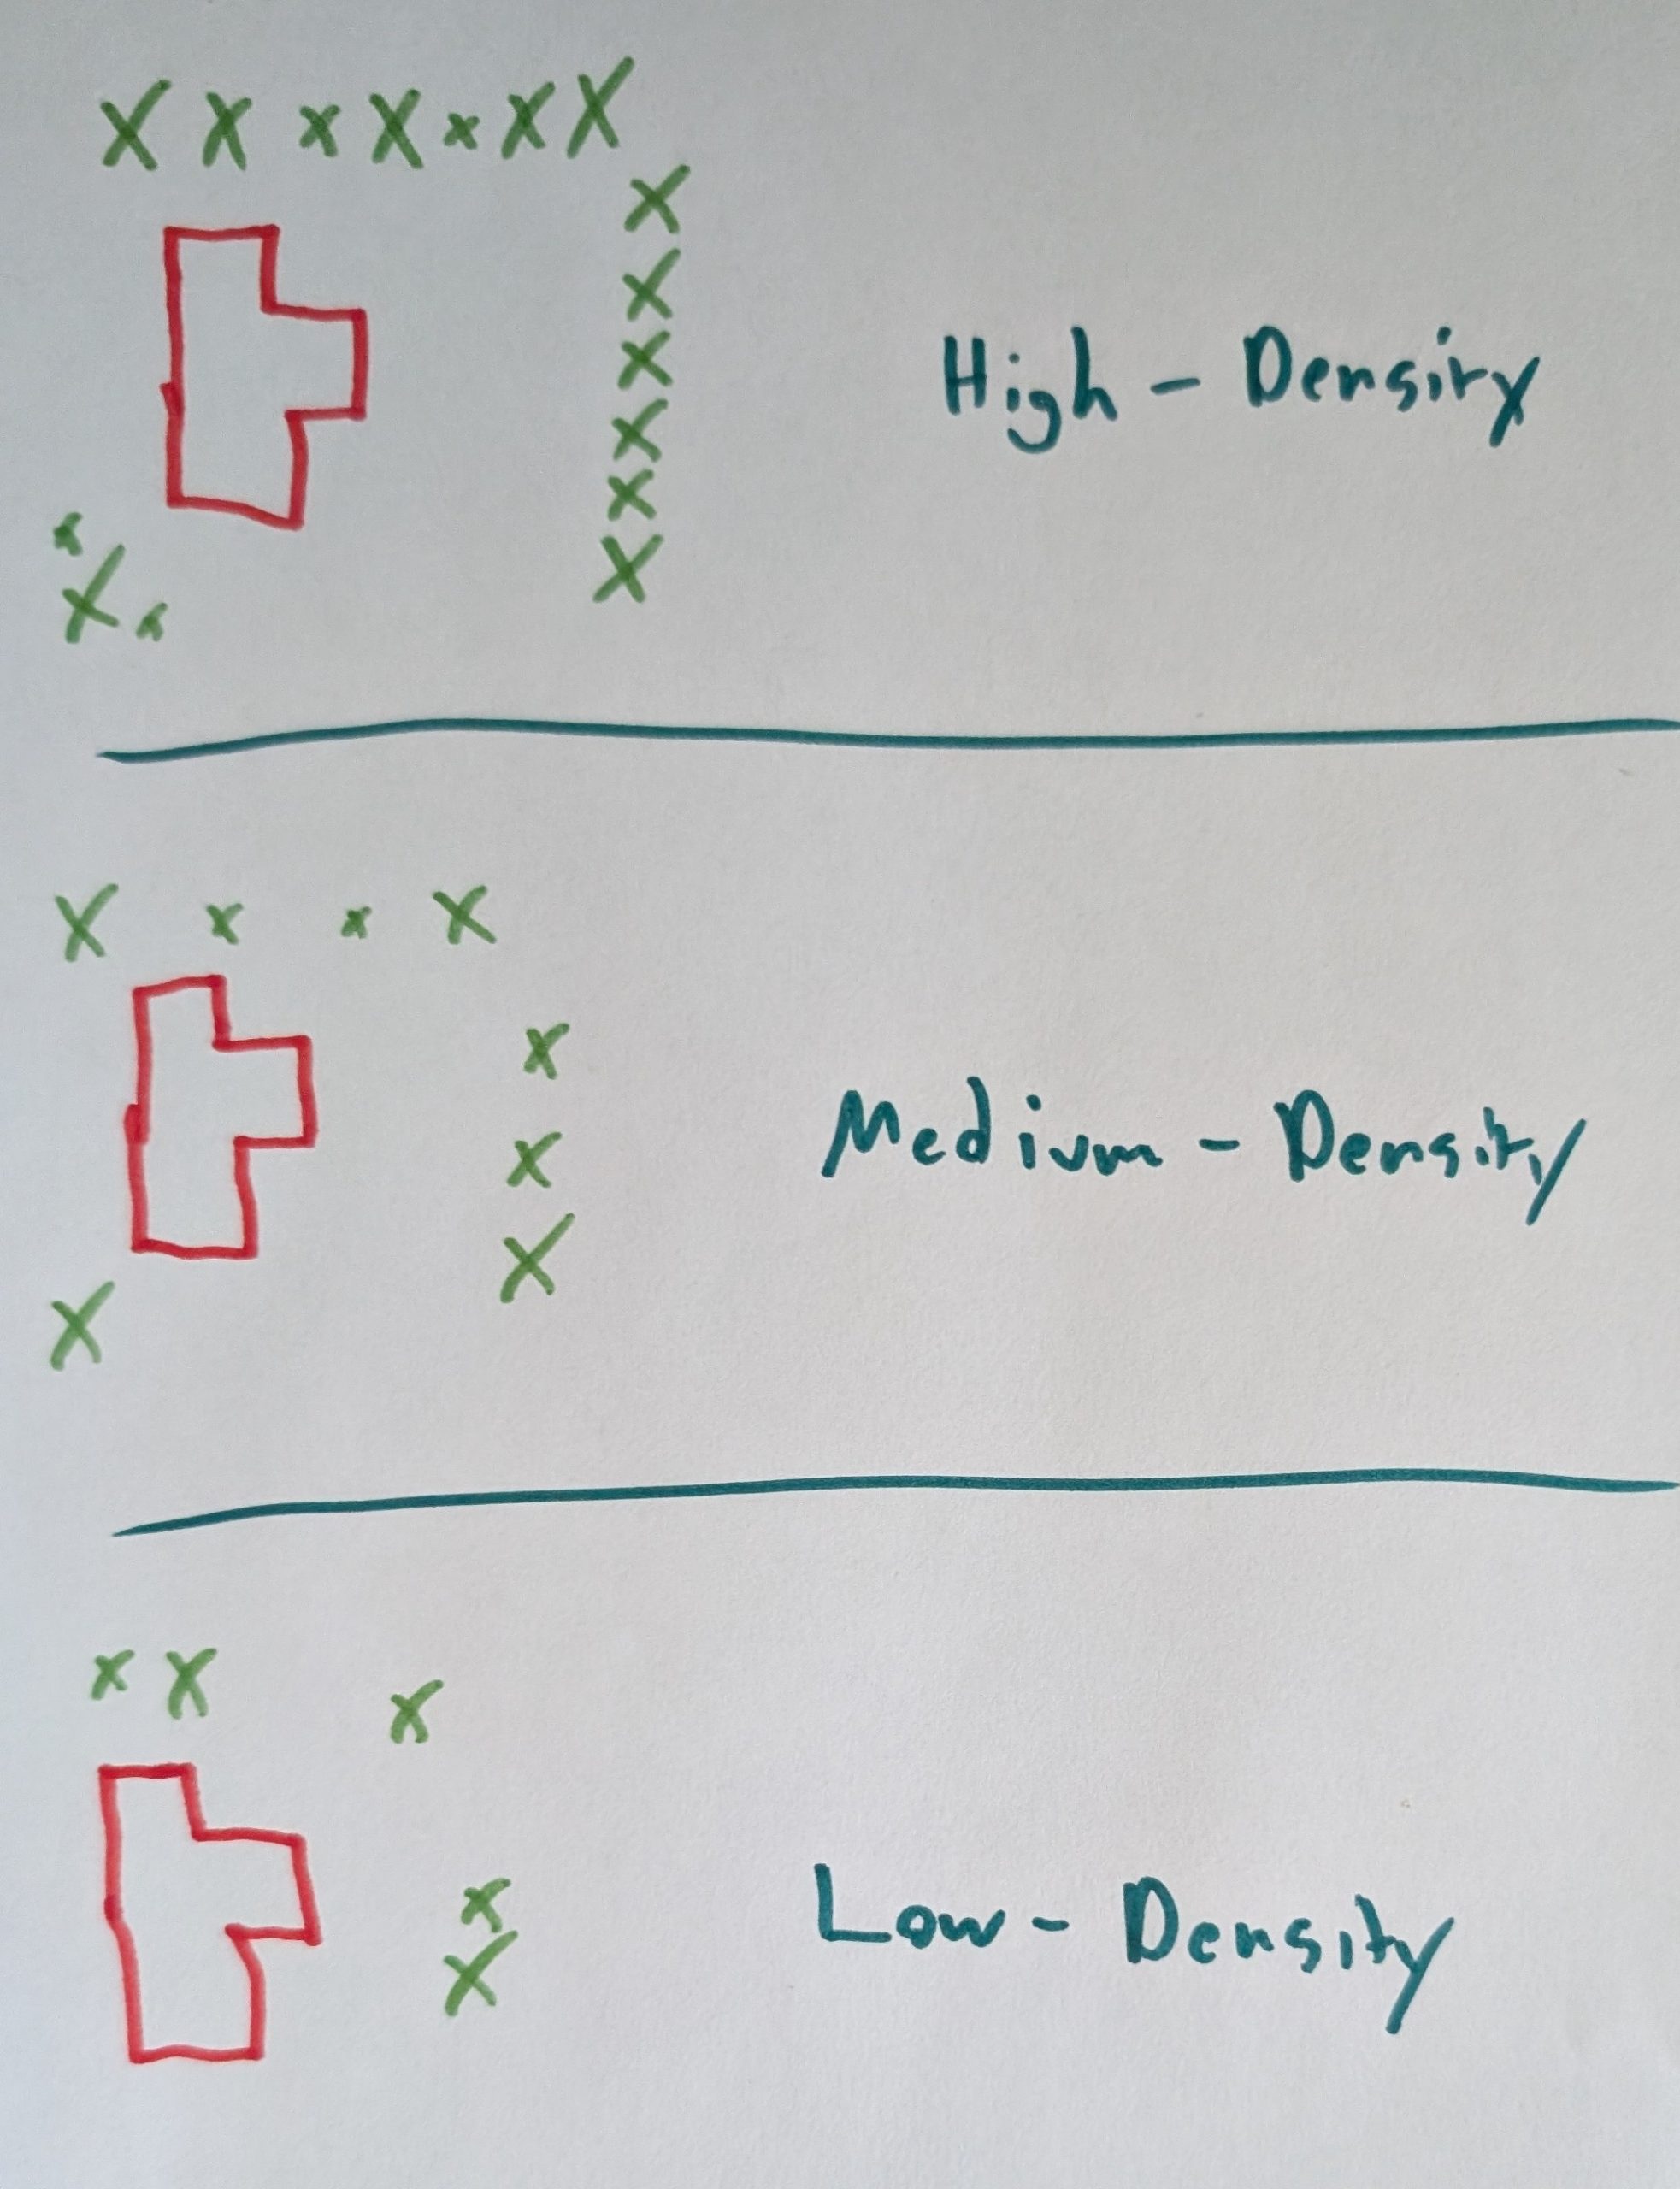 X X x X x X X
X
X
X
X
X
X
x
X x
High - Density
X x x X
x
x
X
X
Medium - Density
x X x
x
X
Low - Density